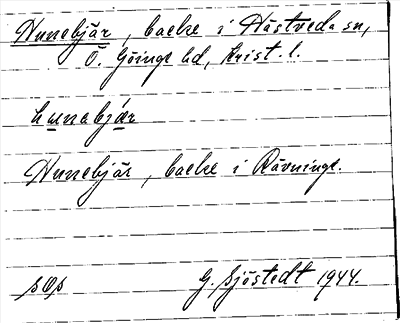 Hunebjär, backe i Hästveda sn,
Ö. Göinge hd, Krist. l.
hunabjár
Hunebjär, backe i Rävninge.
sOs G. Sjöstedt 1944.